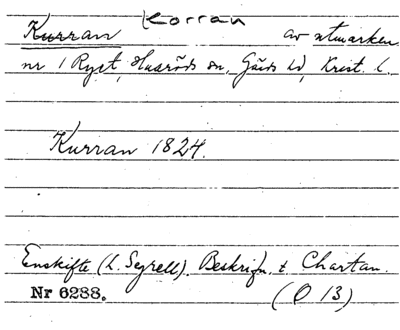 Korran
Kurran av utmarken
nr 1 Ryet, Husröds sn, Gärds hd, Krist. l.
Kurran 1824.
Enskifte (L. Segrell). Beskrifn. t. Chartan.
Nr 6288. (O 13)